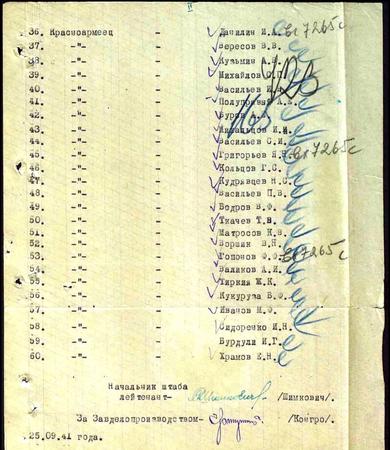 II
36. Красноармеец - Данилин И.А. вх 7265с
37. -"- - Вересов В.В.
38. -"- - Кузьмин А.В.
39. -"- - Михайлов
40. -"- - Васильев
41. -"- -
42. -"- - Буров
43. -"- - И.И.
44. -"- - Васильев С.И.
45. -"- - Григорьев вх 7265с
46. -"- - Кольцов Г.С.
47. -"- - Кудрявцев Н.С.
48. -"- - Васильев П.В.
49. -"- - Бодров В.Ф.
50. -"- - Ткачев Т.В.
51. -"- - Матросов К.В.
52. -"- - В.Н.
53. -"- - Гопонов Ф.Ф. вх 7265с
54. -"- - Валиков А.И.
55. -"- - Тиркия Ж.К.
56. -"- - Кукуруза В.Ф.
57. -"- - Иванов М.Ф.
58 -"- - Сидоренко И.Н.
59. -"- - Бурдули И.Г.
60. -"- - Храмов Е.Н.
Начальник штаба
лейтенант- /Шимкович/.
За Завделопроизводством- /Контро/.
25.09.41 года.